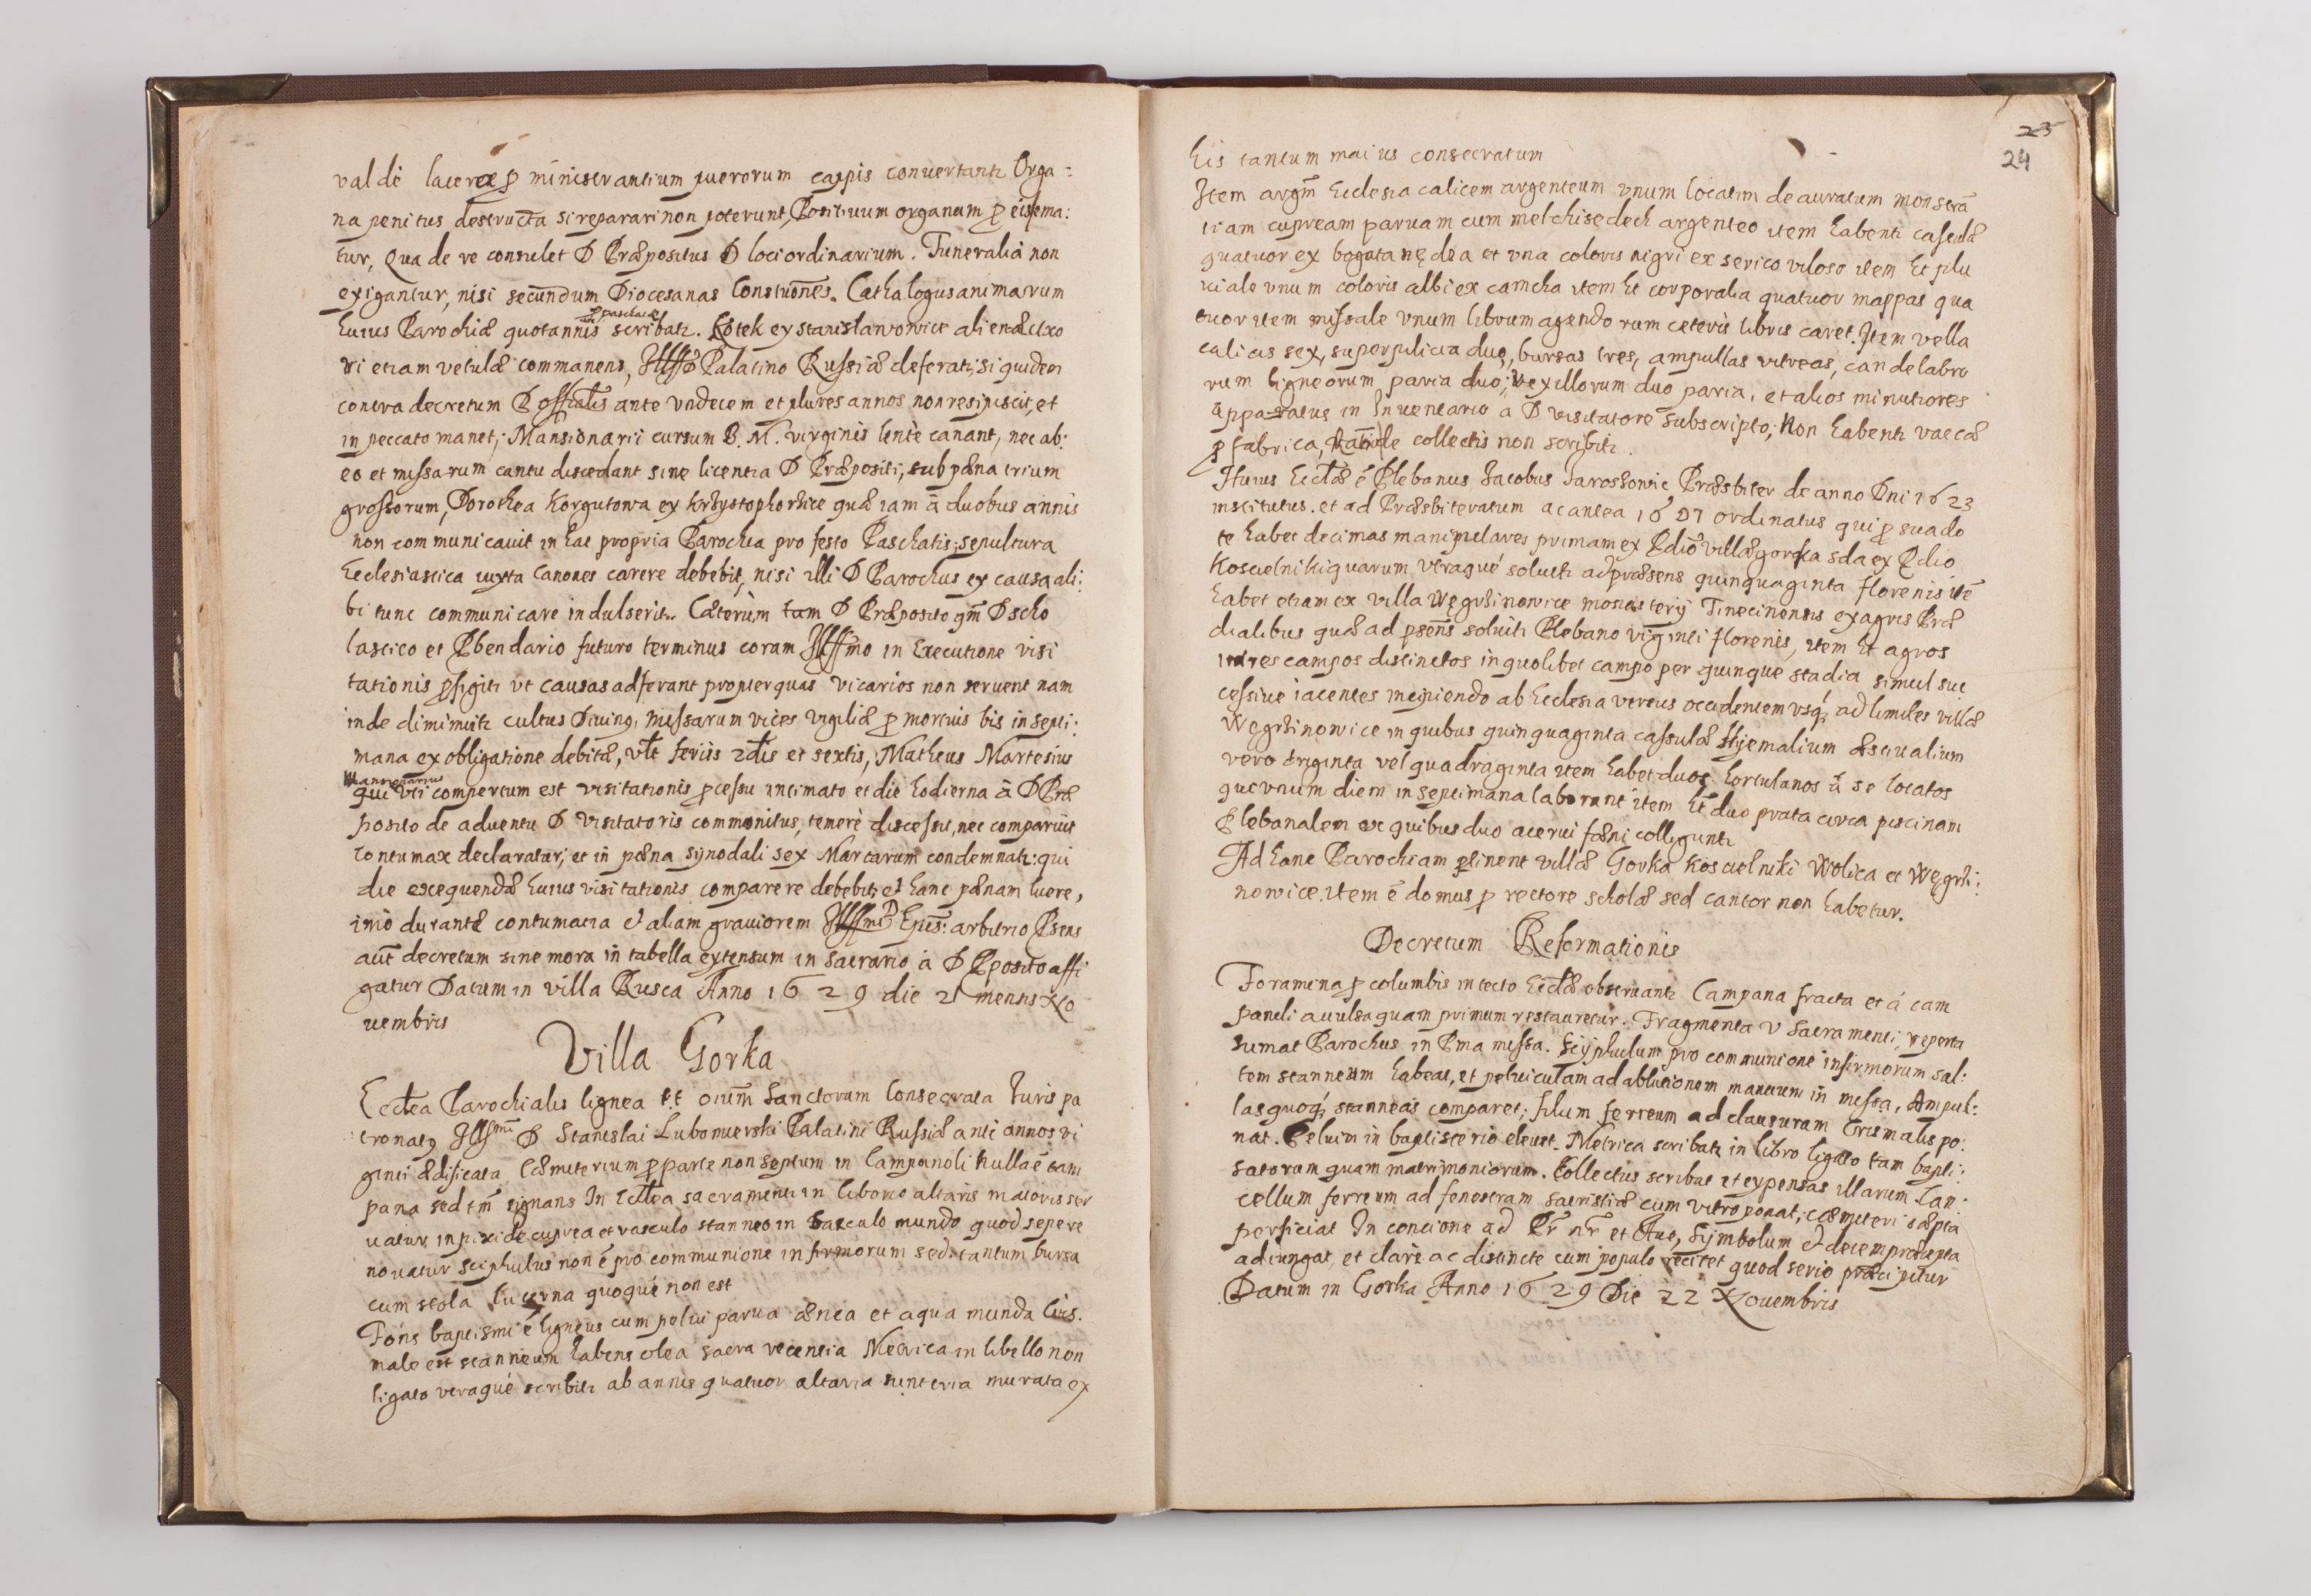 valdè laceræ p ministrantium puerorum cappis conuertantr Orga:
na penitus destructa si reparari non poterunt, Positiuum organum p eis ema:
tur, Qua de re consulet D Præpositus D loci ordinarium. Funeralia non
exigantur, nisi secundum Diocesanas Constuōnes. Cathalogus animarum
huius Parochiæ quotannis p paschate scribatr. Kotek ex stanislawowice alienæ uxo
ri etiam vetulæ commanens, Illssō Palatino Russiæ deferatr, siquidem
contra decretum D offtialis ante vndecem et plures annos non resipiscit, et
in peccato manet; Mansionarii cursum B. M. virginis lentè canant, nec ab:
eo et missarum cantu discedant sine licentia D Præpositi, sub pæna trium
grossorum, Dorothea Korgutowa ex Krzystophorzice quæ iam à duobus annis
non communicauit in hac propria Parochia pro festo Paschatis, sepultura
Ecclesiastica iuxta Canones carere debebit, nisi illi D Parochus ex causa ali:
bi tunc communicare indulserit.. Cæterùm tam D Præposito qm D scho
lastico et Pbendario futuro terminus coram Illssmo in Executione visi
tationis pfigitr vt causas adferant propter quas vicarios non seruent nam
inde diminuitr cultus Diuing, missarum vices vigiliæ p mortuis bis in septi:
mana ex obligatione debitæ, vlt feriis 2dis et sextis, Matheus Martesius
Mansionarius
qui vti compertum est visitationis pcessu intimato et die hodierna à D Præ
posito de aduentu D visitatoris commonitus, temerè discessit, nec comparuit
contumax declaratur, et in pæna synodali sex Marcarum condemnatr: qui
die exequendæ huius visitationis comparere debebit, et hanc pænam luere,
imò durantæ contumacia et aliam grauiorem Illssmi D Epis: arbitrio Psens
aut decretum sine mora in tabella extensum in sacrario à D Pposito affi
gatur Datum in villa Rusca Anno 1629 die 21 mensis No
uembris
Villa Gorka
Ecclea Parochialis lignea tt oium Sanctorum Consecrata Iuris pa
tronatq Illsmi D Stanislai Lubomierski Palatini Russiæ antè annos vi
ginti ædificata Cæmiterium p parte non septum in Campanoli nulla ē cam
pana sed tm signans In Ecclea sacramentr in liborio altaris maioris ser
uatur in pixide cuprea et vasculo stanneo in sacculo mundo quod sepe re
nouatur sciphulus non ē pro communione infirmorum sed tantum bursa
cum stola lucerna quoquè non est
Fons baptismi ē ligneus cum pelui parua ænea et aqua munda Cris.
male est stanneum habens olea sacra recentia Metrica in libello non
ligato vtraquè scribitr ab annis quatuor altaria sunt tria murata ex
23
24
his tantum maius consecratum
Item argm Ecclesia calicem argenteum vnum locatim deauratum monstrā
tiam cupream paruam cum melchisedech argenteo item habentr casulæ
quatuor ex bagata nędza et vna coloris nigri ex serico viloso item ht plu
uiale vnum coloris albi ex camcha item ht corporalia quatuor mappas qua
tuor item missale vnum librum agendorum ceteris libris caret. Item vella
calicis sex, superpilicia duo, bursas tres, ampullas vitreas, candelabro
rum ligneorum paria duo, vexillorum duo paria, et alios minutiores
apparatus in Inuentario a D visitatore subscripto; Non habentr vaccæ
p fabrica, ratio de collectis non scribitr.
Huius Ecclæ ē Plebanus Iacobus Iaroszowic Præsbiter de anno Dni 1623
institutus. et ad Præsbiteratum acantea 1607 ordinatus qui p sua do
te habet decimas manipulares primam ex Pdiō villæ gorka sda ex Pdio
Koscielniki quarum vtraquè soluitr ad præsens quinquaginta florenis itē
habet etiam ex villa Węgrzinowice monasterij Tinecinensis ex agris Præ
dialibus quæ ad psens soluitr Plebano viginti florenis, item ht agros
in tres campos distinctos in quolibet campo per quinque stadia simul suc
cessiue iacentes incipiendo ab Ecclesia versus occidentem vsq; ad limites villæ
Węgrzinowice in quibus quinquaginta cassulæ Hyemalium æstiualium
vero triginta vel quadraginta item habet duos hortulanos à se locatos
que vnum diem in septimana laborant item ht duo prata circa piscinam
Plebanalem ex quibus duo acerui fæni colliguntr
Ad hanc Parochiam ptinent villæ Gorka Koscielniki Wolica et Węgrzi:
nowice. item ē domus p rectore scholæ sed cantor non habetur.
Decretum Reformationis
Foramina p columbis in tecto Ecclæ obseruantr Campana fracta et à cam
panili auulsa quam primum restauretur. Fragmenta V Sacramenti, reperta
sumat Parochus in Pma missa. Scyphulum pro communione infirmorum sal:
tem stanneum habeat, et peluiculam ad ablutionem manuum in missa, Ampul:
las quoq; stanneas comparet; filum ferreum ad clausuram Crismalis po:
nat. Peluim in baptisterio eleuet. Metrica scribatr in libro ligato tam bapti:
satorum quam matrimoniorum. Collectus scribat et expensas illarum. Can:
cellum ferreum ad fenestram sacristiæ cum vitro ponat; cæmiterii sæpta
perficiat In concione ad Pr nr et Aue, Symbolum et decem præcepta
adiungat, et clarè ac distincte cum populo recitet quod serio præcipitur
Datum in Gorka Anno 1629 Die 22 Nouembris